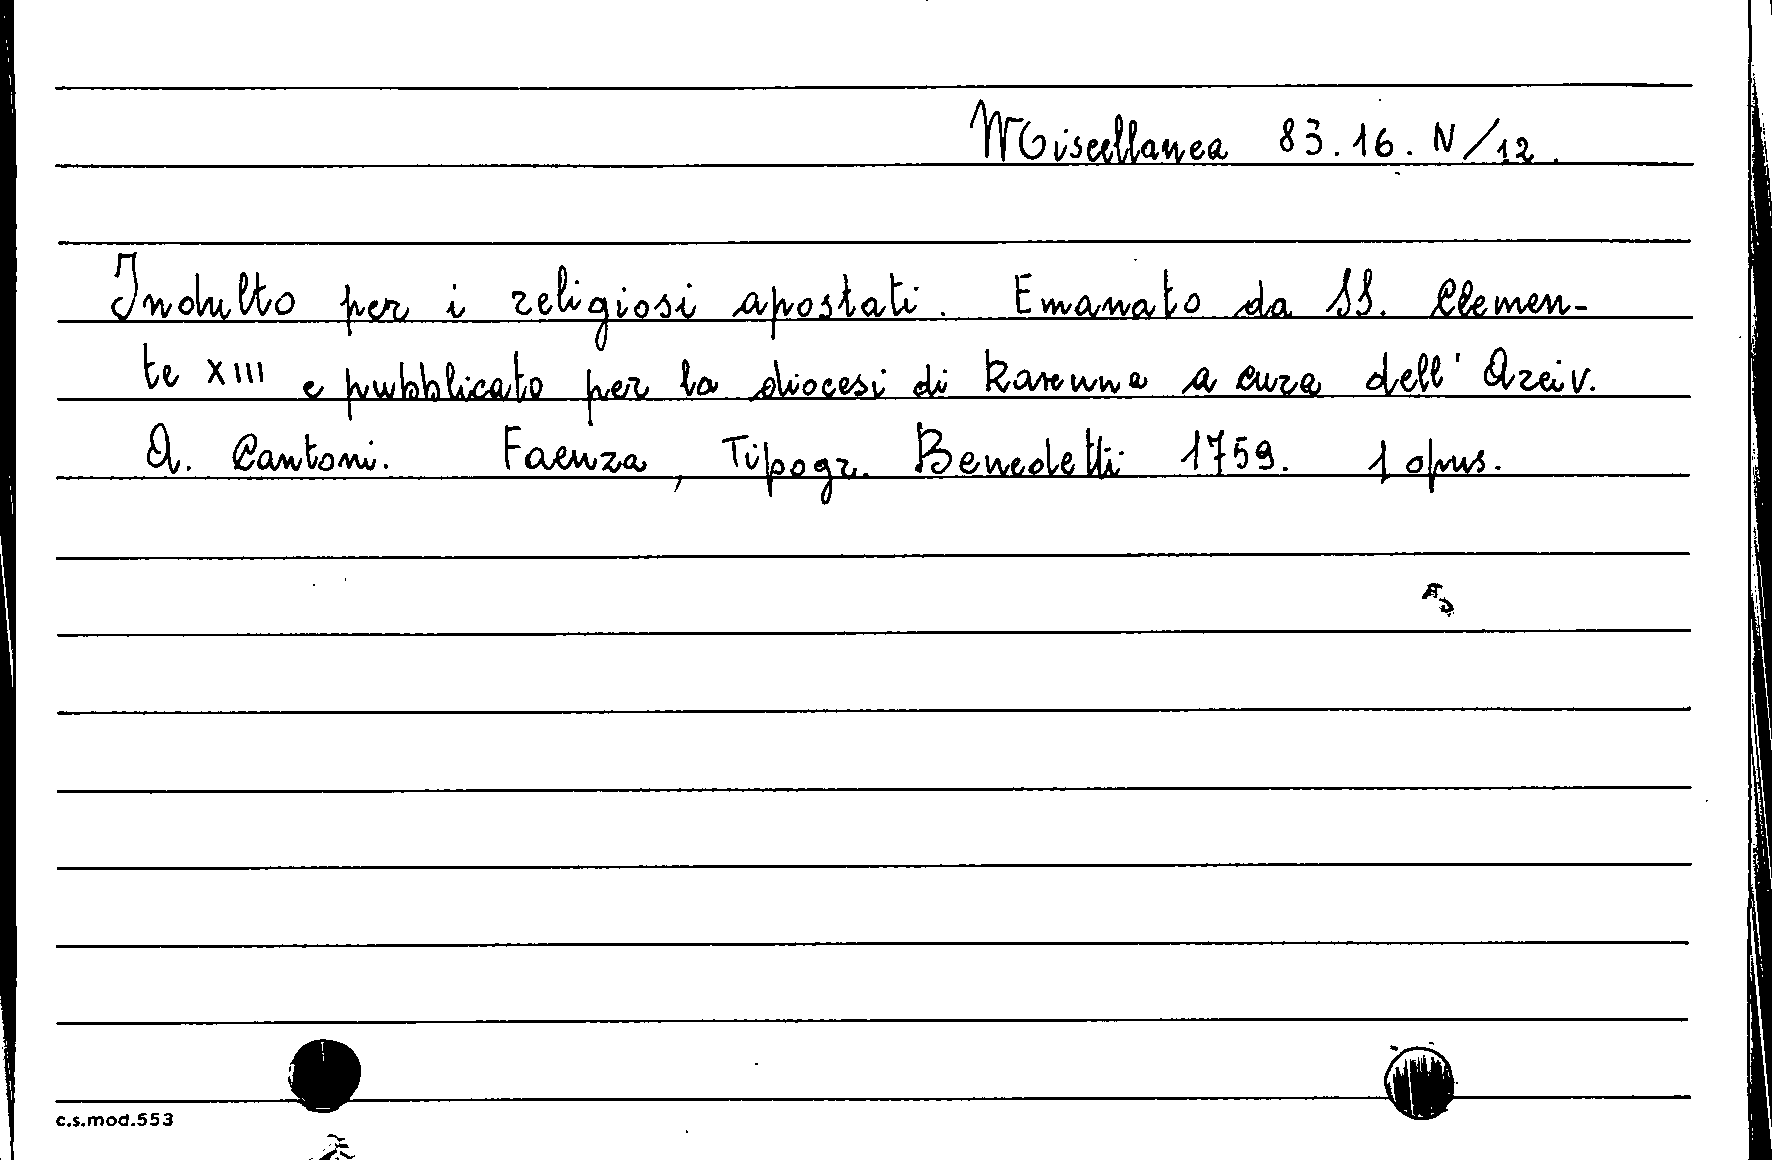 Miscellanea 83.16. N/12.
Indulto per i religiosi apostati. Emanato da SS. Clemen-
te XIII e pubblicato per la diocesi di Ravenna a cura dell'Arciv.
A. Cantoni. Faenza, Tipogr. Benedetti 1759. 1 opus.
c.s.mod.553